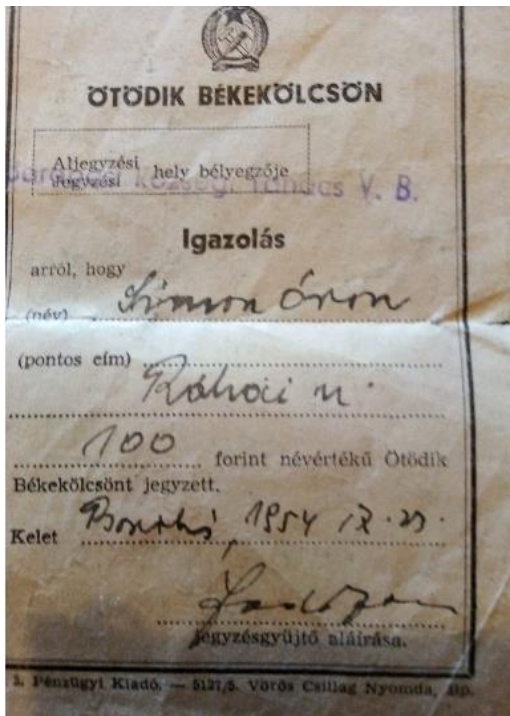 ÖTÖDIK BÉKEKÖLCSÖN
Aljegyzési
Jegyzési hely bélyegzője
községi Tanács V. B.
Igazolás
arról, hogy
(név) Simon Áron
(pontos cím)
Rákóczi u.
100 forint névértékű Ötödik
Békekölcsönt jegyzett.
Kelet 1954 IX. 29.
jegyzésgyüjtő aláírása.
5. Pénzügyi Kiadó. — 5127/5. Vörös Csillag Nyomda, Bp.